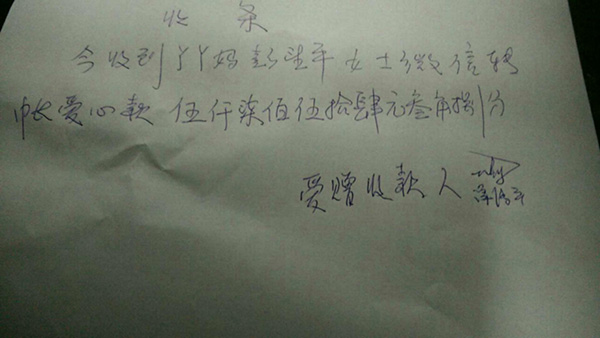 收条
今收到丫丫妈彭 平女士微信转
帐爱心款伍仟柒佰伍拾肆元叁角捌分
受赠收款人